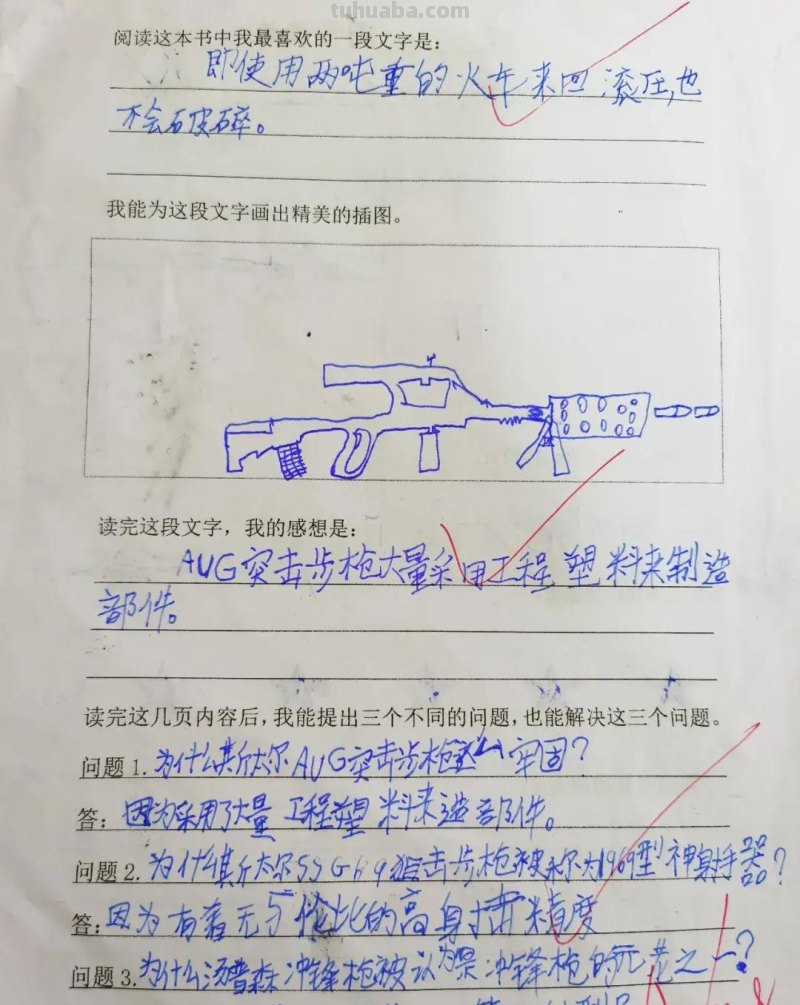 tuhuaba.com
阅读这本书中我最喜欢的一段文字是：
即使用两吨重的火车来回滚压,也
不会破碎。
我能为这段文字画出精美的插图。
读完这段文字，我的感想是：
AUG突击步枪大量采用工程塑料来制造
部件。
读完这几页内容后，我能提出三个不同的问题，也能解决这三个问题。
问题1.为什么斯太尔AUG突击步枪这么牢固?
答：因为采用了大量工程塑料来造部件。
问题2.为什么斯太尔SSG69狙击步枪被称为1969型神射手器?
答：因为有着无与伦比的高射击精度
问题3.为什么汤普森冲锋枪被认为是冲锋枪的元老之一?